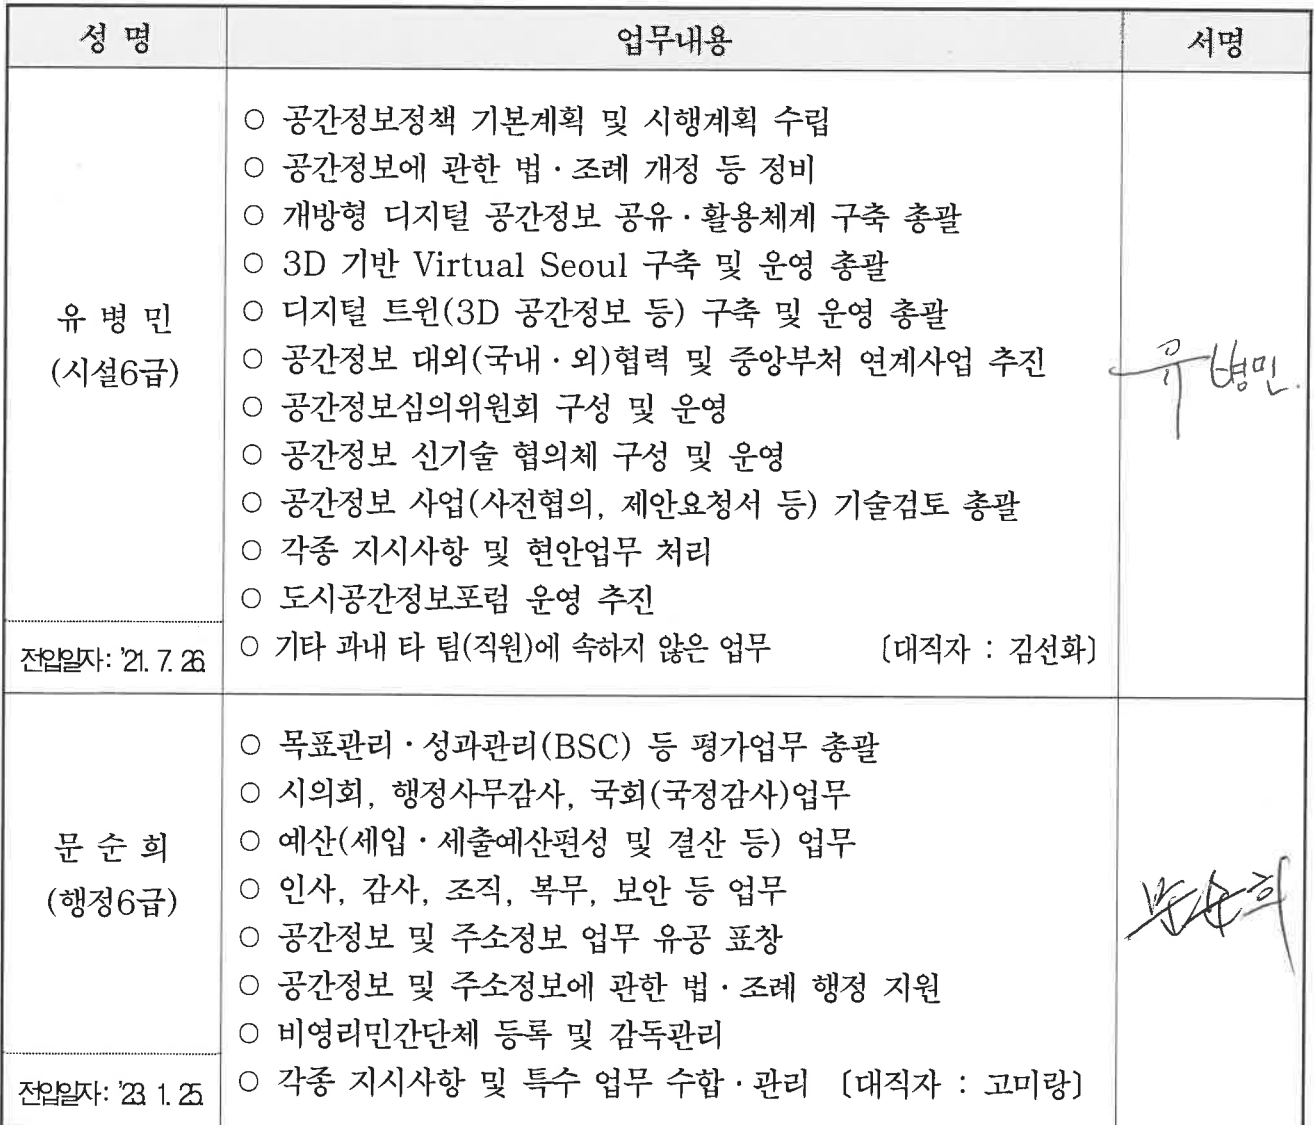 성 명 업무내용 서명
○ 공간정보정책 기본계획 및 시행계획 수립
○ 공간정보에 관한 법·조례 개정 등 정비
○ 개방형 디지털 공간정보 공유·활용체계 구축 총괄
○ 3D 기반 Virtual Seoul 구축 및 운영 총괄
유 병 민 ○ 디지털 트윈(3D 공간정보 등) 구축 및 운영 총괄
(시설6급) ○ 공간정보 대외(국내·외)협력 및 중앙부처 연계사업 추진 유병민.
○ 공간정보심의위원회 구성 및 운영
○ 공간정보 신기술 협의체 구성 및 운영
○ 공간정보 사업(사전협의, 제안요청서 등) 기술검토 총괄
○ 각종 지시사항 및 현안업무 처리
○ 도시공간정보포럼 운영 추진
전입일자: '21. 7. 26. ○ 기타 과내 타 팀(직원)에 속하지 않은 업무 〔대직자 : 김선화〕
○ 목표관리·성과관리(BSC) 등 평가업무 총괄
○ 시의회, 행정사무감사, 국회(국정감사)업무
문 순 희 ○ 예산(세입·세출예산편성 및 결산 등) 업무
(행정6급) ○ 인사, 감사, 조직, 복무, 보안 등 업무 문순희
○ 공간정보 및 주소정보 업무 유공 표창
○ 공간정보 및 주소정보에 관한 법·조례 행정 지원
○ 비영리민간단체 등록 및 감독관리
전입일자: '23. 1. 25. ○ 각종 지시사항 및 특수 업무 수합·관리 〔대직자 : 고미랑〕